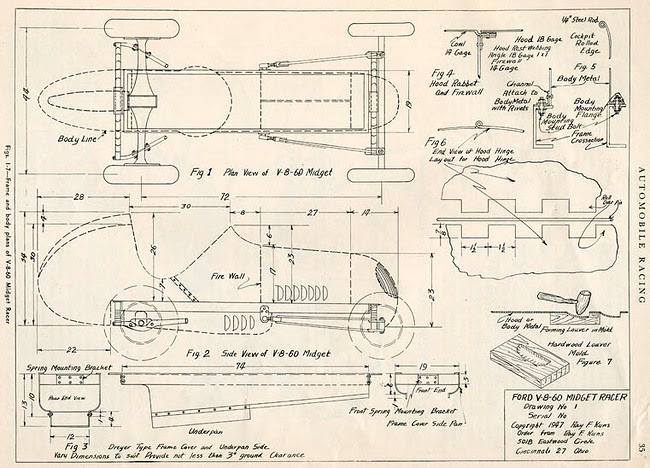 Figs. 1-7—Frame and body plans of V-8-60 Midget Racer
AUTOMOBILE RACING
35
42
Body Line
19
Fig 1 Plan View of V-8-60 Midget
Cowl
14 Gage
Hood 18 Gage
Hood Rest Webbing
Angle 18 Gage 1x1
Firewall
14 Gage
Fig 4
Hood Rabbet
and Firewall
1/4" Steel Rod
Cockpit
Rolled
Edge
Fig. 5
Body Metal
Channel
Attach to
Body Metal
with Rivets
Body
Mounting
Flange
Body
Mounting
Stud Bolt
Frame
Crossection
Fig 6
End View of Hood Hinge
Layout for Hood Hinge
Roll
Over Pin
1½
1½
28
72
30
8
27
14
4
26
6
23
17
23
30
7
Fire Wall
22
Fig. 2 Side View of V-8-60 Midget
Hood or
Body Metal
Forming Louver in Mold
Hardwood Louver
Mold
Figure 7
74
19
Spring Mounting Bracket
Rear End View
13
10
12
4
Fig 3
Underpan
Front End
3
Front Spring Mounting Bracket
Frame Cover Side Pan
Dreyer Type Frame Cover and Underpan Side
Vary Dimensions to suit Provide not less than 3" ground Clearance
FORD V-8-60 MIDGET RACER
Drawing No 1
Serial No
Copyright 1947 Ray F Kuns
Order from Ray F. Kuns
5018 Eastwood Circle
Cincinnati 27 Ohio